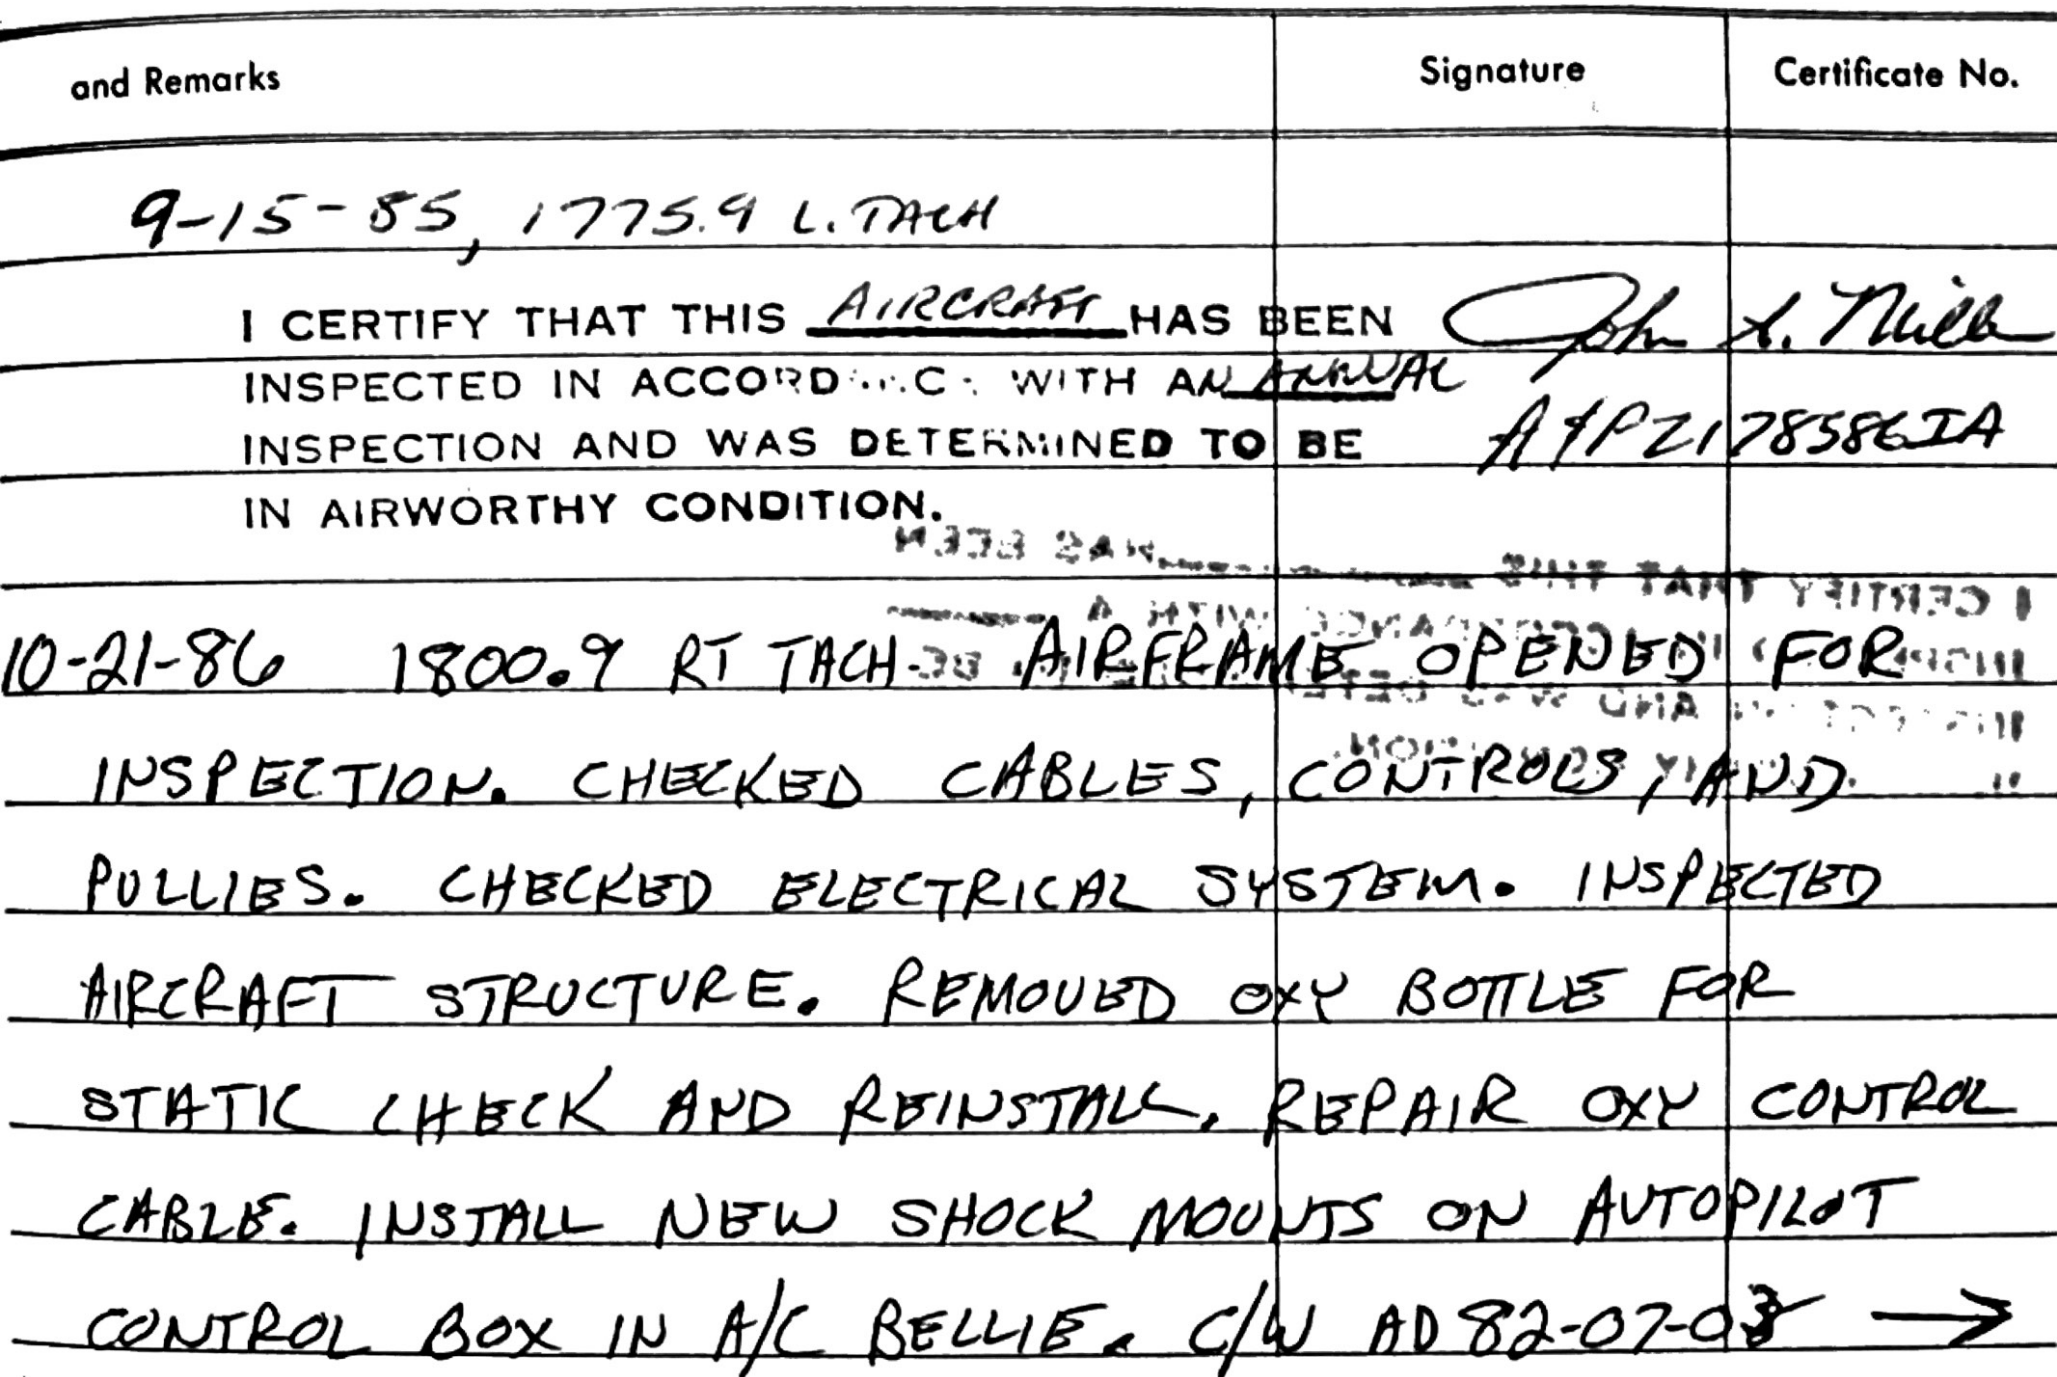 and Remarks Signature Certificate No.
9-15-85, 1775.9 L. TACH
I CERTIFY THAT THIS AIRCRAFT HAS BEEN John S. Miller
INSPECTED IN ACCORDANCE WITH AN ANNUAL
INSPECTION AND WAS DETERMINED TO BE A&P2178586IA
IN AIRWORTHY CONDITION.
10-21-86 1800.9 RT TACH. AIRFRAME OPENED FOR
INSPECTION. CHECKED CABLES, CONTROLS, AND
PULLIES. CHECKED ELECTRICAL SYSTEM. INSPECTED
AIRCRAFT STRUCTURE. REMOVED OXY BOTTLE FOR
STATIC CHECK AND REINSTALL. REPAIR OXY CONTROL
CABLE. INSTALL NEW SHOCK MOUNTS ON AUTOPILOT
CONTROL BOX IN A/C BELLIE. C/W AD 82-07-03 →